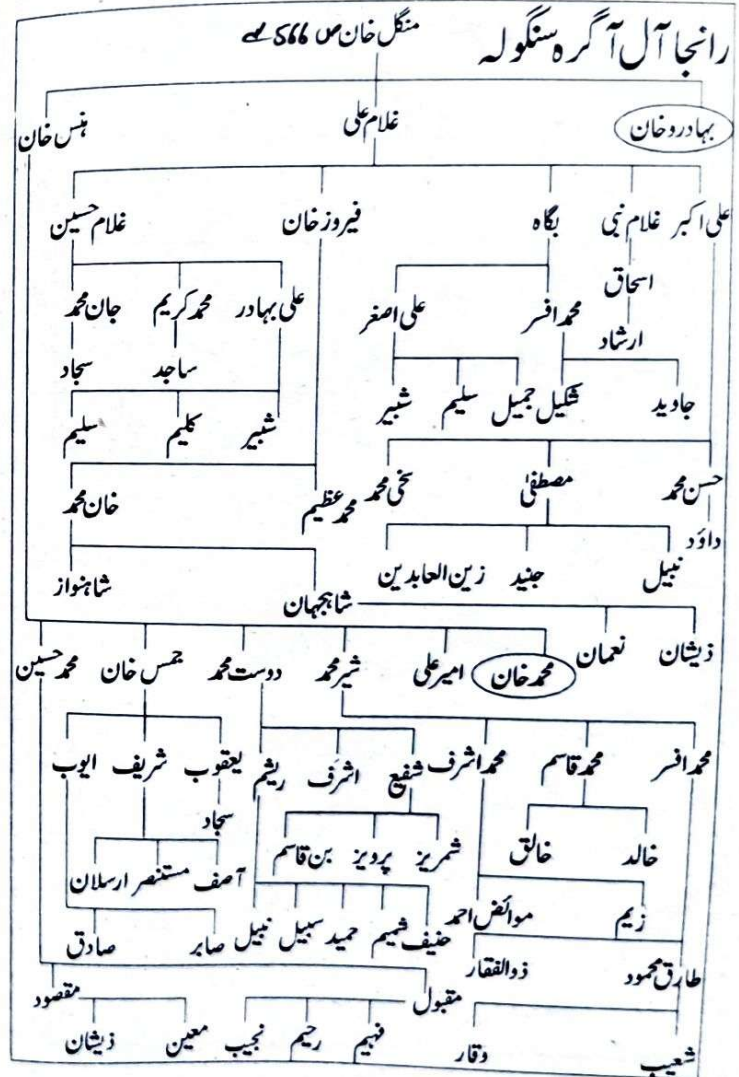 رانجا آل آگرہ سنگولہ
منگل خان ص 566 سے
بہادرو خان غلام علی ہنس خان
علی اکبر غلام نبی بگاہ فیروز خان غلام حسین
اسحاق محمد افسر علی اصغر علی بہادر محمد کریم جان محمد
ارشاد ساجد سجاد
جاوید شکیل جمیل سلیم شبیر شبیر کلیم سلیم
حسن محمد مصطفیٰ سخی محمد محمد عظیم خان محمد
داؤد
نبیل جنید زین العابدین شاہجہان شاہنواز
ذیشان نعمان
محمد خان امیر علی شیر محمد دوست محمد جمس خان محمد حسین
محمد افسر محمد قاسم محمد اشرف شفیع اشرف ریشم یعقوب شریف ایوب
سجاد
خالد خالق شمریز پرویز بن قاسم آصف مستنصر ارسلان
زیم موائض احمد حنیف شمیم حمید سبیل نبیل صابر صادق
طارق محمود ذوالفقار
مقبول مقصود
شعیب وقار فہیم رحیم نجیب معین ذیشان